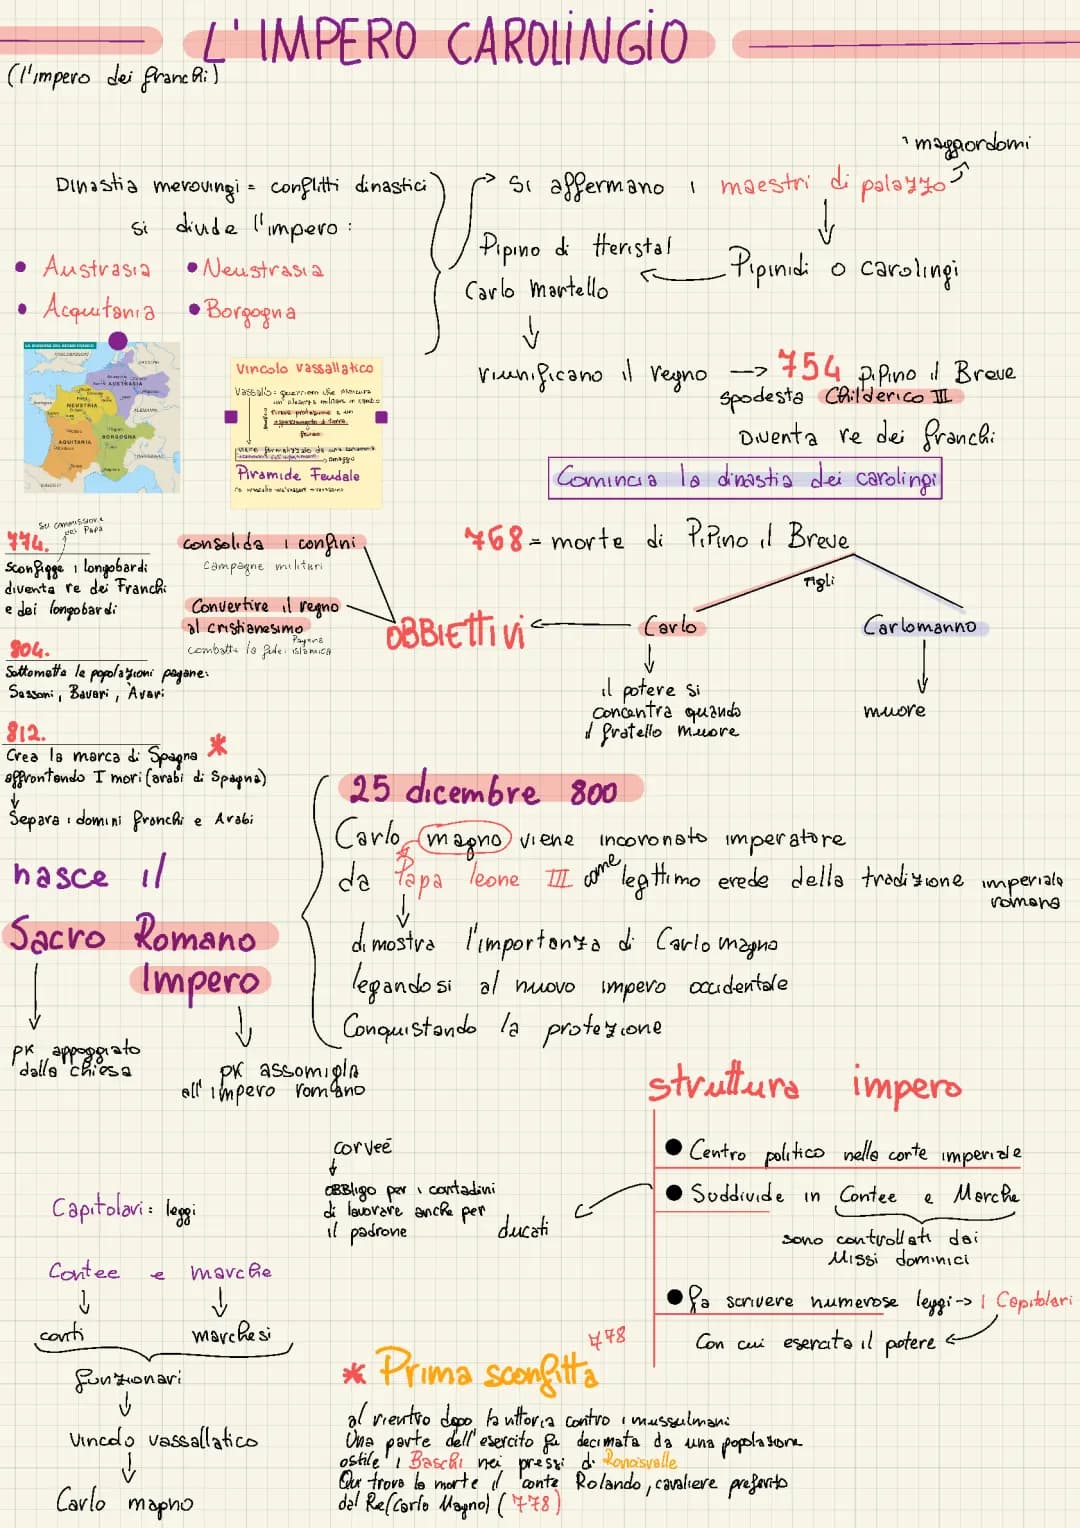 L'IMPERO CAROLINGIO
(l'impero dei franchi)
Dinastia merovingi = conflitti dinastici
si divide l'impero :
• Austrasia • Neustrasia
• Acquitania • Borgogna
Si affermano i maestri di palazzo
maggiordomi
Pipinidi o carolingi
Pipino di Heristal
Carlo Martello
riunificano il regno → 754 P.Pino il Breve
spodesta Childerico III
Diventa re dei franchi
Comincia la dinastia dei carolingi
LA DIVISIONE DEL REGNO FRANCO
AUSTRASIA
NEUSTRIA
ALEMANNI
AQUITANIA
BORGOGNA
Vincolo vassallatico
Vassallo: guerriero che assicura
un'alleanza militare in cambio
Piramide Feudale
768 = morte di P.Pino il Breve
figli
Carlo
Carlomanno
il potere si
concentra quando
il fratello muore
muore
OBBIETTIVI
consolida i confini
campagne militari
Convertire il regno
al cristianesimo
Pagana
Combatte la fede: islamica
774.
Su commissione
del Papa
Sconfigge i longobardi
diventa re dei Franchi
e dei longobardi
804.
Sottomette le popolazioni pagane:
Sassoni, Bavari, Avari
812.
Crea la marca di Spagna *
affrontando I mori (arabi di Spagna)
↓
Separa i domini franchi e Arabi
25 dicembre 800
Carlo magno viene incoronato imperatore
da Papa leone III come legittimo erede della tradizione imperiale
romana
dimostra l'importanza di Carlo magno
legandosi al nuovo impero occidentale
Conquistando la protezione
nasce il
Sacro Romano
Impero
pk appoggiato
dalla chiesa
pk assomigla
all'impero romano
struttura impero
● Centro politico nella corte imperiale
● Suddivide in Contee e Marche
sono controllati dai
Missi dominici
● fa scrivere numerose leggi → I Capitolari
Con cui esercita il potere
corveè
↓
OBBligo per i contadini
di lavorare anche per
il padrone
ducati
Capitolari: leggi
Contee e marche
conti
marchesi
funzionari
↓
Vincolo vassallatico
↓
Carlo magno
* Prima sconfitta
778
al rientro dopo la vittoria contro i mussulmani
Una parte dell'esercito fu decimata da una popolazione
ostile i Baschi nei pressi di Roncisvalle
Qui trova la morte il conte Rolando, cavaliere preferito
dal Re(Carlo Magno) (778)